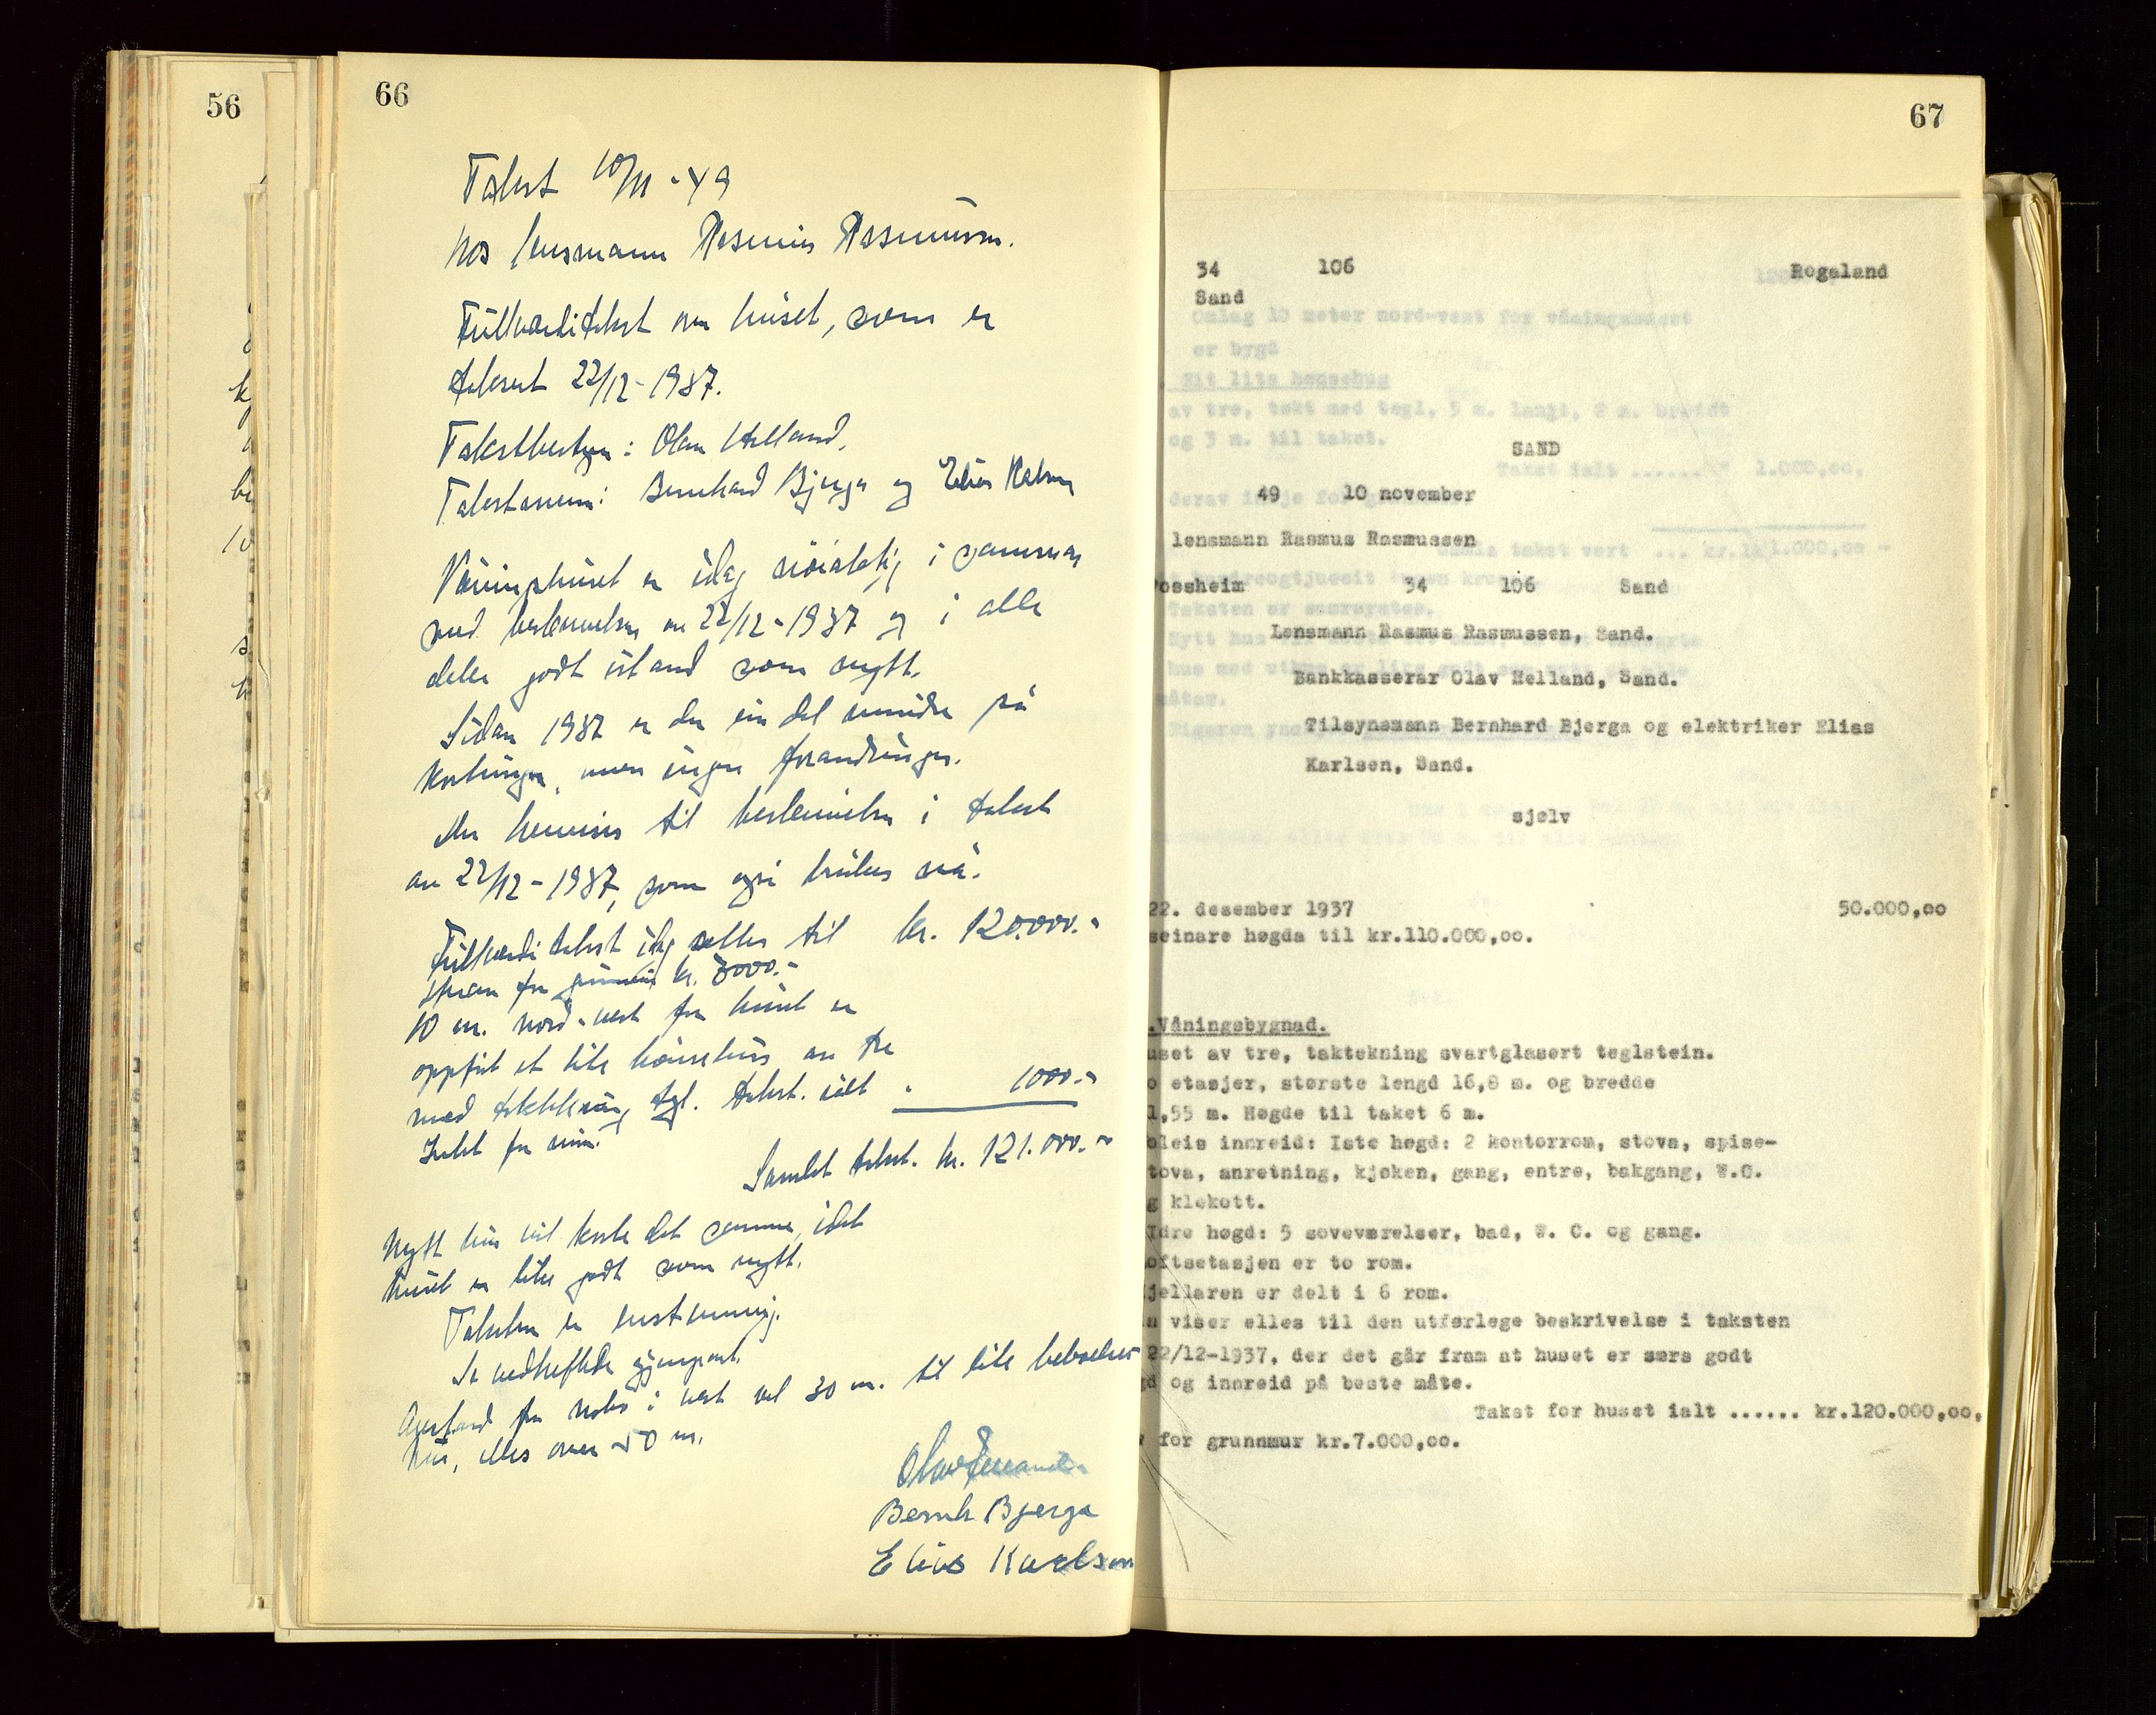 56
66
Takst 10/11-49
hos lensmann Rasmus Rasmussen.
Fullverditakst av huset, som er
taksert 22/12-1937.
Takstbestyrer: Olav Helland.
Takstmenn: Bernhard Bjerga og Elias Karlsen
Våningshuset er idag nöiaktig i sammsvar
med beskrivelsen av 22/12-1937 og i alle
deler godt istand som nytt.
Sidan 1937 er der ein del mindre på
kostninger, men ingen forandringer.
Der henvises til beskrivelse i takst
av 22/12-1937, som også brukes nå.
Fullverditakst idag settes til kr. 120.000.-
Herav for grunnmur kr. 7000.-
10 m. nord-vest for huset er
oppført et lite hønsehus av tre
med taktekning tegl. Takst. ialt " 1000.-
Intet for mur.
Samlet takst. kr. 121.000.-
Nytt hus vil koste det samme, idet
huset er like godt som nytt.
Taksten er enstemmig.
Se vedheftede gjenpart.
Avstand fra nabo i vest vel 30 m. til lite beboelses
hus, elles over 50 m.
Olav Helland
Bernh Bjerga
Elias Karlsen
67
34 106 Rogaland
Sand
Omlag 10 meter nord-vest for våningshuset
er bygd
Eit lite hønsehus
av tre, tekt med tegl, 5 m. langt, 2 m. breidt
og 3 m. til taket.
SAND
Takst ialt ...... " 1.000,oo.
49 10 november
lensmann Rasmus Rasmussen
takst vert ... kr.121.000,oo -
Fossheim 34 106 Sand
Taksten er samrøystes.
Lensmann Rasmus Rasmussen, Sand.
Bankkasserar Olav Helland, Sand.
Tilsynsmann Bernhard Bjerga og elektriker Elias
Karlsen, Sand.
sjølv
22. desember 1937 50.000,oo
seinare høgda til kr.110.000,oo.
.Våningsbygnad.
uset av tre, taktekning svartglasert teglstein.
o etasjer, største lengd 16,8 m. og bredde
1,55 m. Høgde til taket 6 m.
oleis innreid: 1ste høgd: 2 kontorrom, stova, spise-
tova, anretning, kjøken, gang, entre, bakgang, W.C.
g klekott.
Idre høgd: 5 soveværelser, bad, W. C. og gang.
oftsetasjen er to rom.
jellaren er delt i 6 rom.
n viser elles til den utførlege beskrivelse i taksten
22/12-1937, der det går fram at huset er særs godt
gd og innreid på beste måte.
Takst for huset ialt ...... kr.120.000,oo,
v for grunnmur kr.7.000,oo.